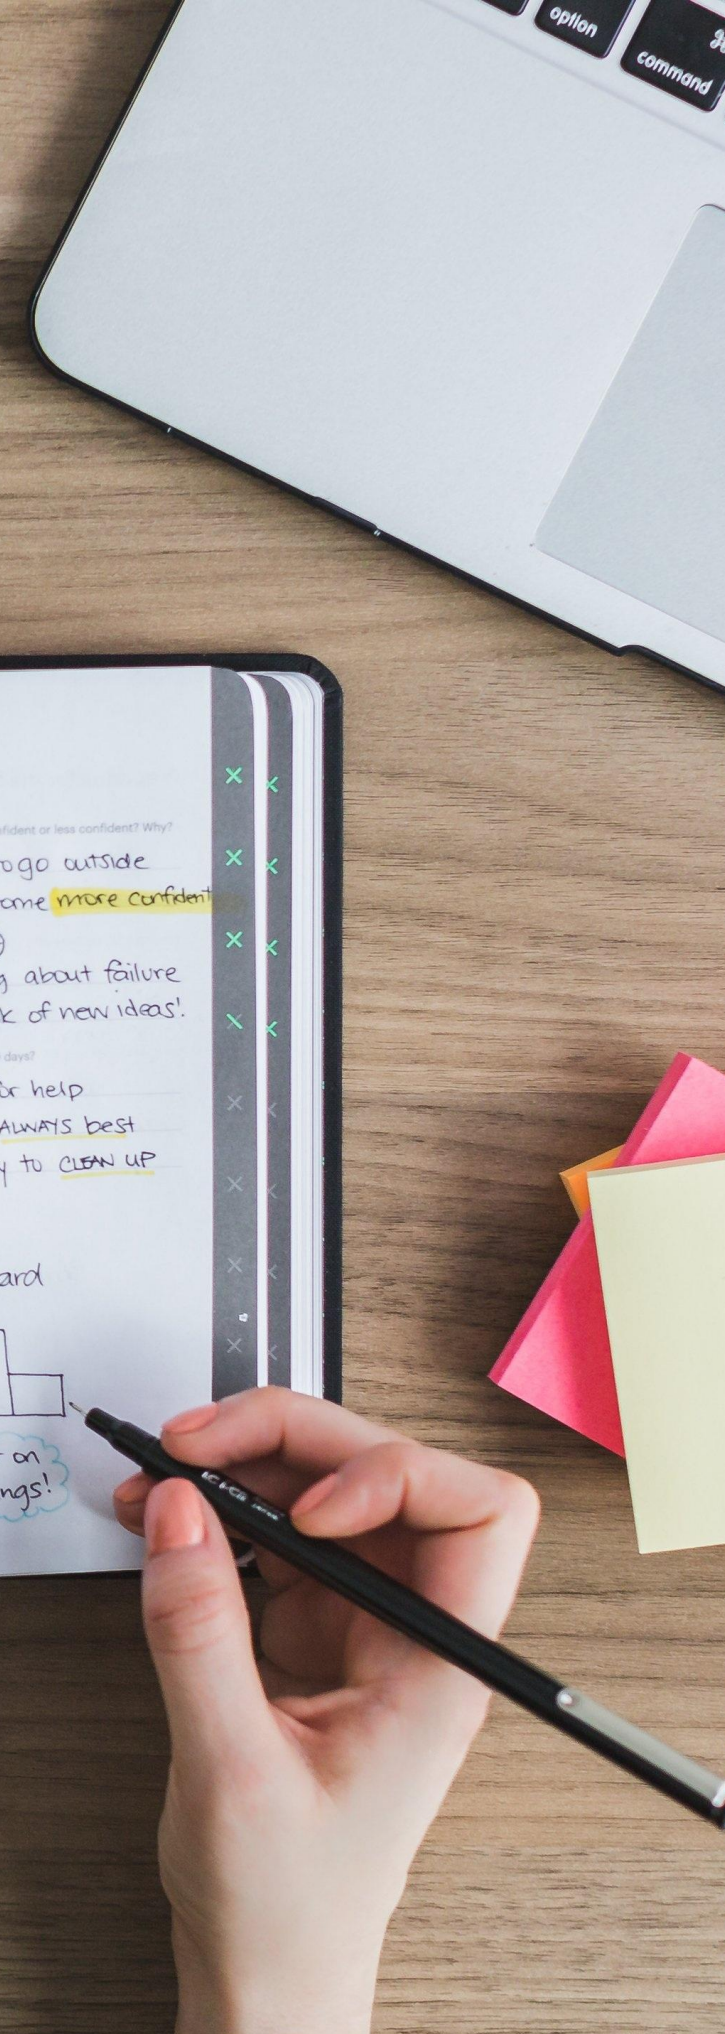 option
⌘
command
fident or less confident? Why?
o go outside
ome more confident
g about failure
k of new ideas!
days?
or help
ALWAYS best
y to CLEAN UP
ard
on
ngs!